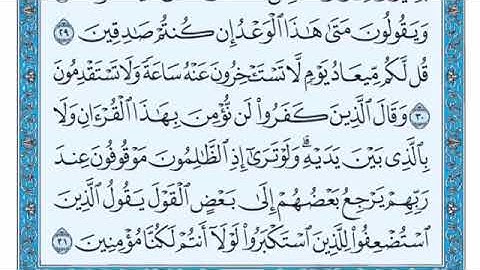 وَيَقُولُونَ مَتَىٰ هَٰذَا ٱلْوَعْدُ إِن كُنتُمْ صَٰدِقِينَ ٢٩
قُل لَّكُم مِّيعَادُ يَوْمٍ لَّا تَسْتَـْٔخِرُونَ عَنْهُ سَاعَةً وَلَا تَسْتَقْدِمُونَ
٣٠ وَقَالَ ٱلَّذِينَ كَفَرُوا۟ لَن نُّؤْمِنَ بِهَٰذَا ٱلْقُرْءَانِ وَلَا
بِٱلَّذِى بَيْنَ يَدَيْهِ ۗ وَلَوْ تَرَىٰٓ إِذِ ٱلظَّٰلِمُونَ مَوْقُوفُونَ عِندَ
رَبِّهِمْ يَرْجِعُ بَعْضُهُمْ إِلَىٰ بَعْضٍ ٱلْقَوْلَ يَقُولُ ٱلَّذِينَ
ٱسْتُضْعِفُوا۟ لِلَّذِينَ ٱسْتَكْبَرُوا۟ لَوْلَآ أَنتُمْ لَكُنَّا مُؤْمِنِينَ ٣١